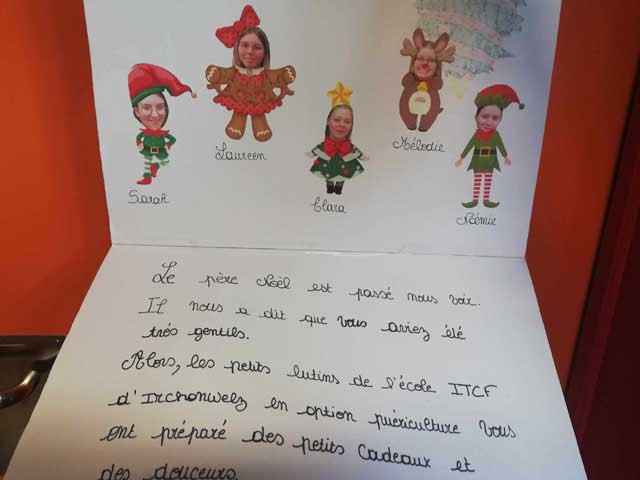 Sarah
Laureen
Clara
Mélodie
Noémie
Le père Noël est passé nous voir.
Il nous a dit que vous aviez été
très gentils.
Alors, les petits lutins de l'école ITCF
d'Irchonwelz en option puériculture vous
ont préparé des petits cadeaux et
des douceurs.